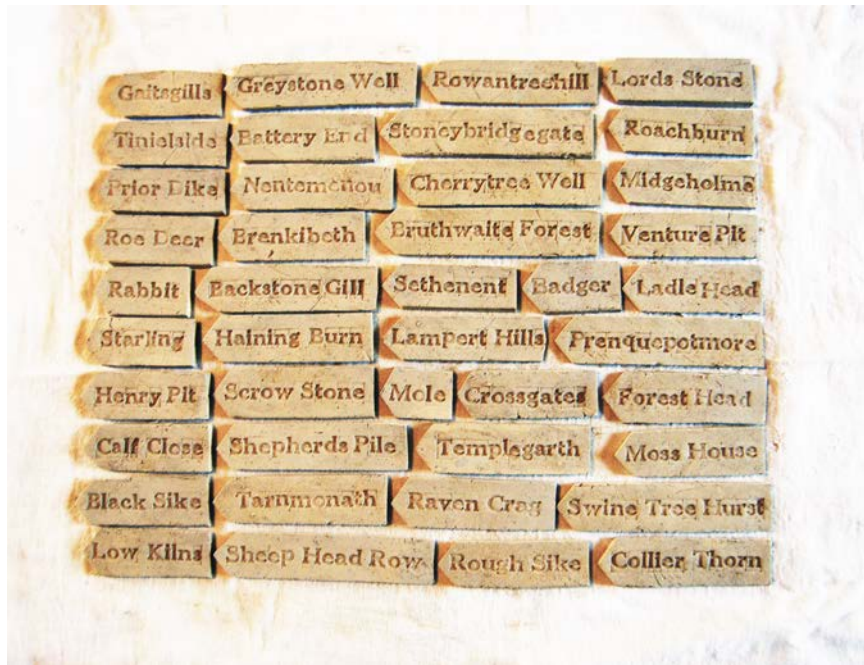 Gaitsgills Greystone Well Rowantreehill Lords Stone
Tinielside Battery End Stoneybridgegate Roachburn
Prior Dike Nentemenou Cherrytree Well Midgeholme
Roe Deer Brenkibeth Bruthwaite Forest Venture Pit
Rabbit Backstone Gill Sethenent Badger Ladle Head
Starling Haining Burn Lampert Hills Prenquepotmore
Henry Pit Scrow Stone Mole Crossgates Forest Head
Calf Close Shepherds Pile Templegarth Moss House
Black Sike Tarnmonath Raven Crag Swine Tree Hurst
Low Kilns Sheep Head Row Rough Sike Collier Thorn